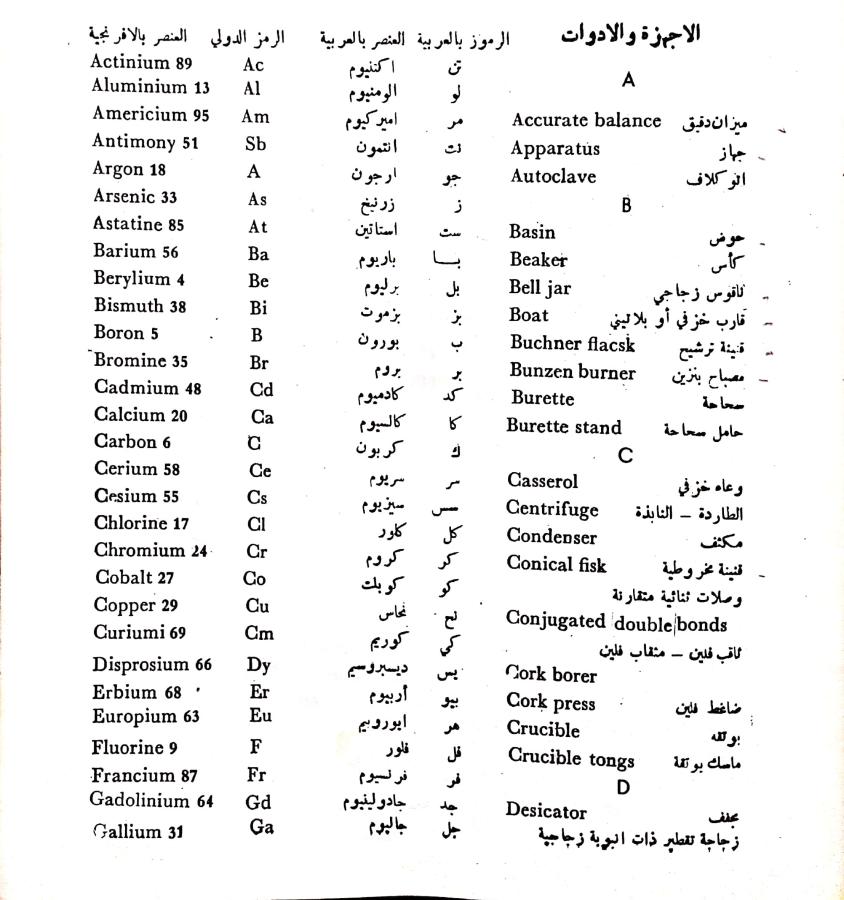 العنصر بالافرنجية الرمز الدولي العنصر بالعربية الرموز بالعربية
Actinium 89 Ac اكتنيوم تن
Aluminium 13 Al الومنيوم لو
Americium 95 Am اميركيوم مر
Antimony 51 Sb انتمون نت
Argon 18 A ارجون جو
Arsenic 33 As زرنيخ ز
Astatine 85 At استاتين ست
Barium 56 Ba باريوم بـا
Berylium 4 Be برليوم بل
Bismuth 38 Bi بزموت بز
Boron 5 B بورون ب
Bromine 35 Br بروم بر
Cadmium 48 Cd كادميوم كد
Calcium 20 Ca كالسيوم كا
Carbon 6 C كربون ك
Cerium 58 Ce سريوم سر
Cesium 55 Cs سيزيوم سس
Chlorine 17 Cl كلور كل
Chromium 24 Cr كروم كر
Cobalt 27 Co كوبلت كو
Copper 29 Cu نحاس نح
Curiumi 69 Cm كوريم كي
Disprosium 66 Dy ديسبروسيم يس
Erbium 68 Er أربيوم بيو
Europium 63 Eu ايوروبيم هر
Fluorine 9 F فلور فل
Francium 87 Fr فرنسيوم فر
Gadolinium 64 Gd جادولينيوم جد
Gallium 31 Ga جاليوم جل
الاجهزة والادوات
A
Accurate balance ميزان دقيق
Apparatus جهاز
Autoclave الوكلاف
B
Basin حوض
Beaker كأس
Bell jar ناقوس زجاجي
Boat قارب خزفي أو بلاتيني
Buchner flacsk قنينة ترشيح
Bunzen burner مصباح بنزين
Burette سحاحة
Burette stand حامل سحاحة
C
Casserol وعاء خزفي
Centrifuge الطاردة – النابذة
Condenser مكثف
Conical fisk قنينة مخروطية
وصلات ثنائية متقارنة
Conjugated double bonds
ثاقب فلين – مثقاب فلين
Cork borer
Cork press ضاغط فلين
Crucible بوتقه
Crucible tongs ماسك بوتقة
D
Desicator مجفف
زجاجة تقطير ذات انبوبة زجاجية